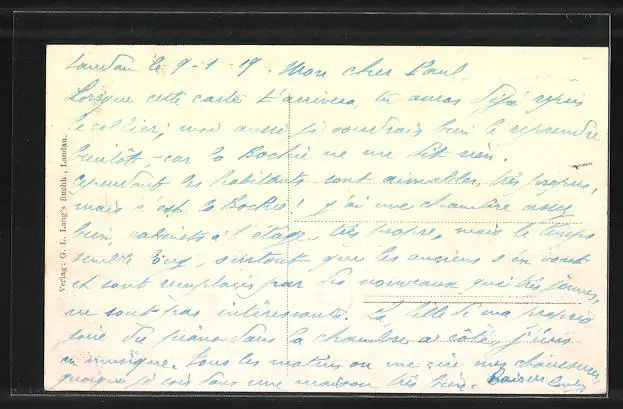 Landau le 9-1-19. Mon cher Paul,
Lorsque cette carte t'arrivera, tu auras déjà repris
le collier; moi aussi je voudrais bien le reprendre
bientôt, car la Bochie ne me dit rien.
Cependant les habitants sont aimables, très propres,
mais c'est la Bochie! j'ai une chambre assez
bien, cabinets à l'étage, très propre, mais le temps
semble long, surtout que les anciens s'en vont
et sont remplacés par des nouveaux qui très jeunes,
ne sont pas intéressants. La fille de ma proprié
taire du piano dans la chambre à côté, j'suis
en musique. Tous les matins on me cire mes chaussures,
quoique je sois dans une maison très bien. Baisers
Verlag: G. L. Lang's Buchh., Landau.